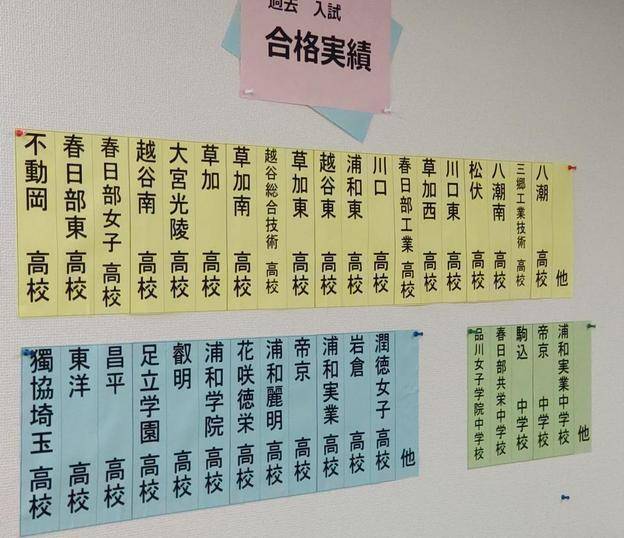 過去 入試
合格実績
不動岡 高校
春日部東 高校
春日部女子 高校
越谷南 高校
大宮光陵 高校
草加 高校
草加南 高校
越谷総合技術 高校
草加東 高校
越谷東 高校
浦和東 高校
川口 高校
春日部工業 高校
草加西 高校
川口東 高校
松伏 高校
八潮南 高校
三郷工業技術 高校
八潮 高校
他
獨協埼玉 高校
東洋 高校
昌平 高校
足立学園 高校
叡明 高校
浦和学院 高校
花咲徳栄 高校
浦和麗明 高校
帝京 高校
浦和実業 高校
岩倉 高校
潤徳女子 高校
他
品川女子学院中学校
春日部共栄中学校
駒込 中学校
帝京 中学校
浦和実業中学校
他